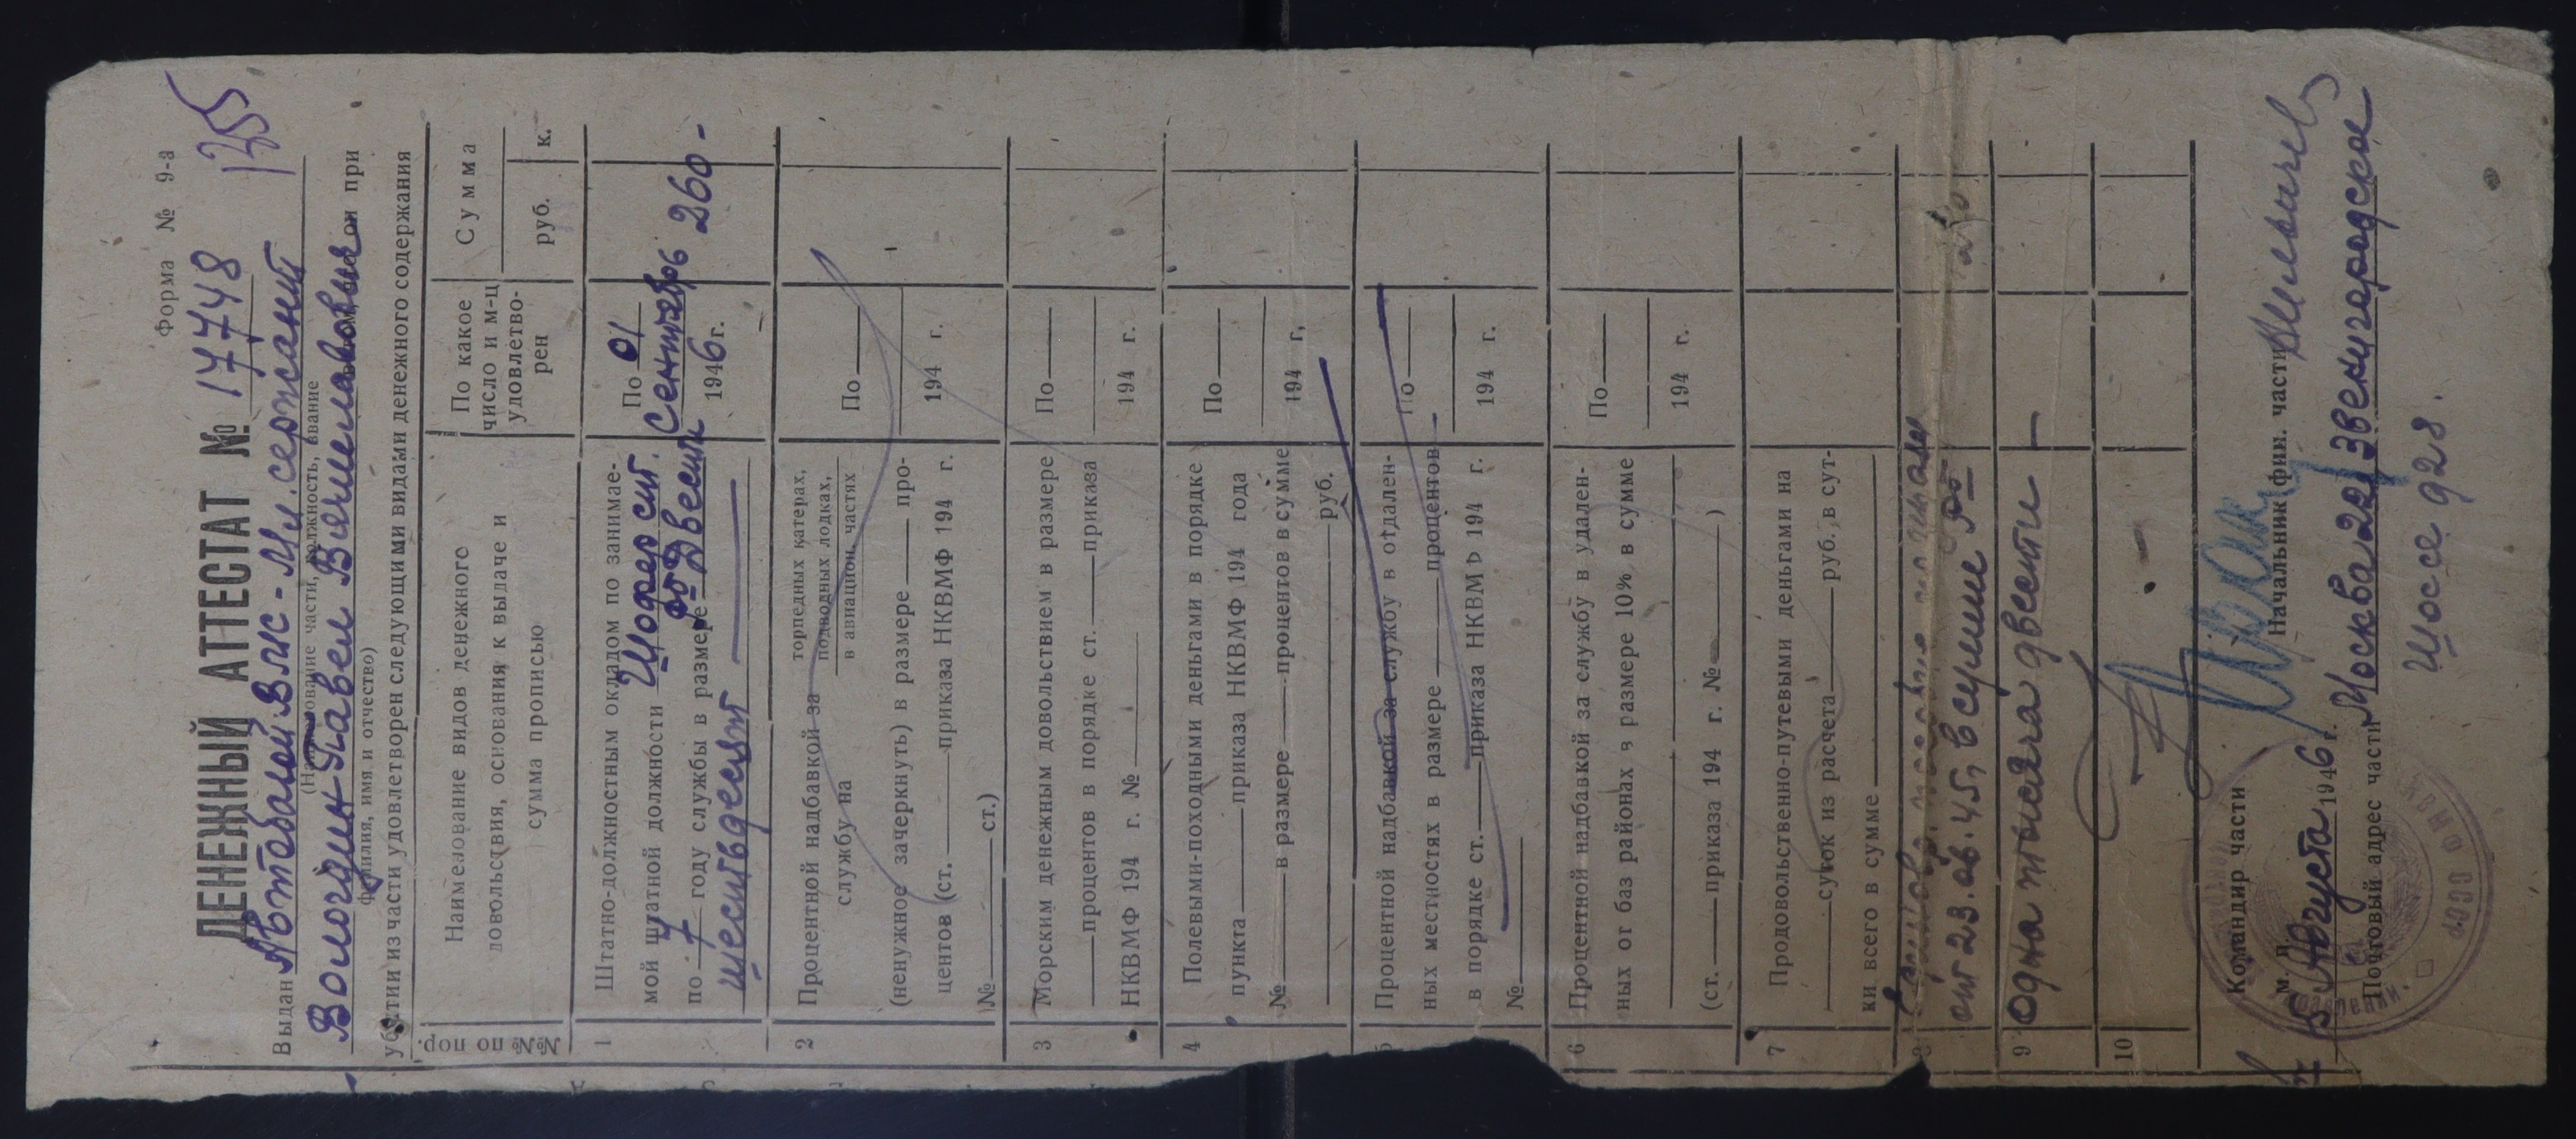 Форма № 9-а
125
ДЕНЕЖНЫЙ АТТЕСТАТ № 17748
Выдан Автобатой ВМС - Мл. сержант
(Наименование части, должность, звание
Вологдин Павел Вячеславович
Фамилия, имя и отчество)
в том, что он при
убытии из части удовлетворен следующими видами денежного содержания
№№ по пор.
Наименование видов денежного довольствия, основания к выдаче и сумма прописью
По какое число и м-ц удовлетворен
Сумма
руб. к.
1
Штатно-должностным окладом по занимае-
мой штатной должности Шофер
по 7 году службы в размере Двести
шестьдесят
По 01
Сентябрь
1946 г.
260 -
2
Процентной надбавкой за службу на
торпедных катерах,
подводных лодках,
в авиацион. частях
(ненужное зачеркнуть) в размере про-
центов (ст. приказа НКВМФ 194 г.
№ ст.)
По
194 г.
3
Морским денежным довольствием в размере
процентов в порядке ст. приказа
НКВМФ 194 г. №
По
194 г.
4
Полевыми-походными деньгами в порядке
пункта приказа НКВМФ 194 года
№ в размере процентов в сумме
руб.
По
194 г,
5
Процентной надбавкой за службу в отдален-
ных местностях в размере процентов
в порядке ст. приказа НКВМФ 194 г.
№
По
194 г.
6
Процентной надбавкой за службу в удален-
ных от баз районах в размере 10% в сумме
(ст. приказа 194 г. № )
По
194 г.
7
Продовольственно-путевыми деньгами на
суток из расчета руб. в сут-
ки всего в сумме
8
от 23.ов.45, в сумме
9
одна тысяча двести —
10
Командир части
Начальник фин. части
М. П.
5 Августа 1946 г.
Почтовый адрес части Москва 22, Звенигородское
Шоссе 928.